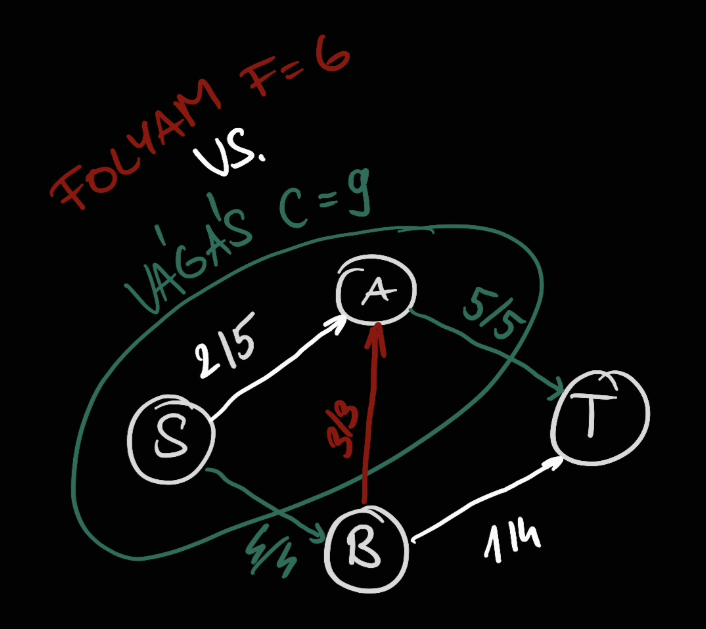 FOLYAM F=6
VS.
VÁGÁS C=9
A
2/5
5/5
S
T
3/3
B
4/4
1/4